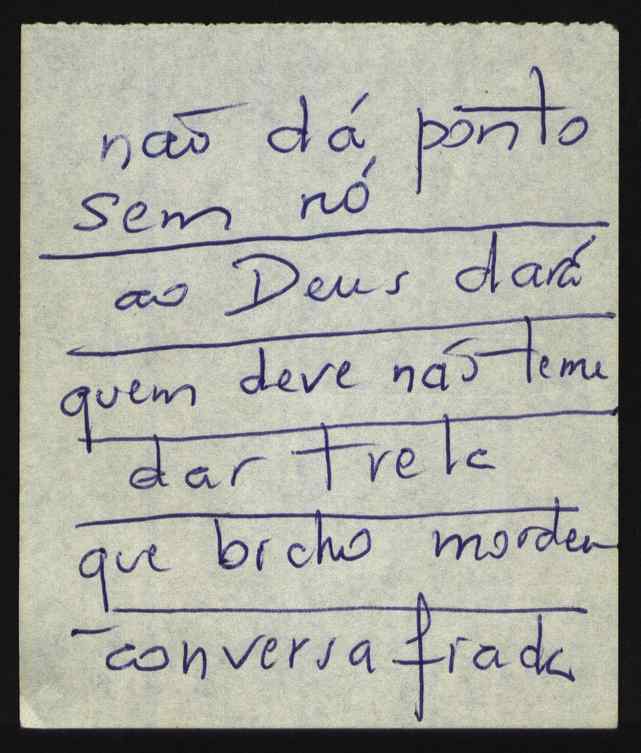 não dá ponto
sem nó
ao Deus dará
quem deve não teme
dar trela
que bicho morden
conversa frada